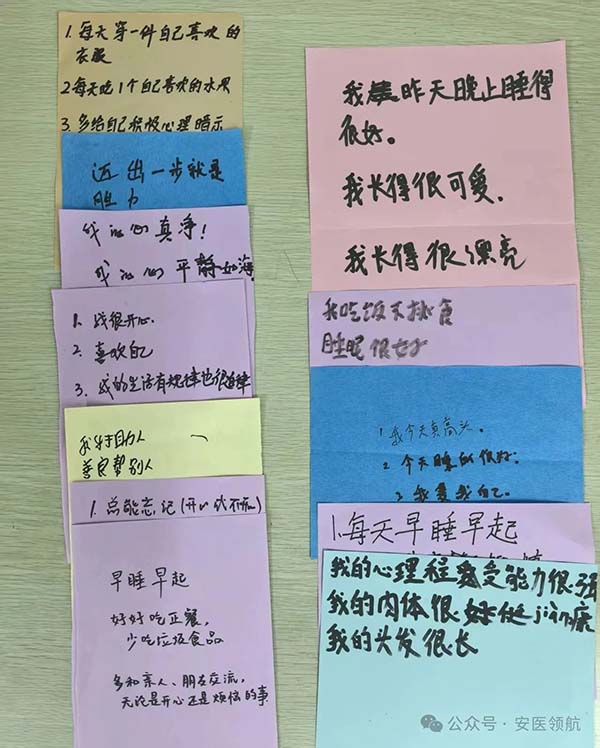 1. 每天穿一件自己喜欢的
衣服
2 每天吃1个自己喜欢的水果
3. 多给自己积极心理暗示
迈出一步就是
胜力
我的心真净!
我的心平静如海
1. 我很开心.
2. 喜欢自己
3. 我的生活有规律也很自律
我好助人
善良帮别人
1. 总能忘记(开心或不痛)
早睡早起
好好吃正餐,
少吃垃圾食品
多和亲人、朋友交流,
无论是开心还是烦恼的事
我昨天晚上睡得
很好。
我长得很可爱.
我长得很漂亮
我吃饭不挑食
睡眠很好
1 我今天真高头.
2 今天睡的很好.
3 我是我自己.
1.每天早睡早起
我的心理程受能力很强
我的肉体很jiàn康
我的头发很长
公众号·安医领航